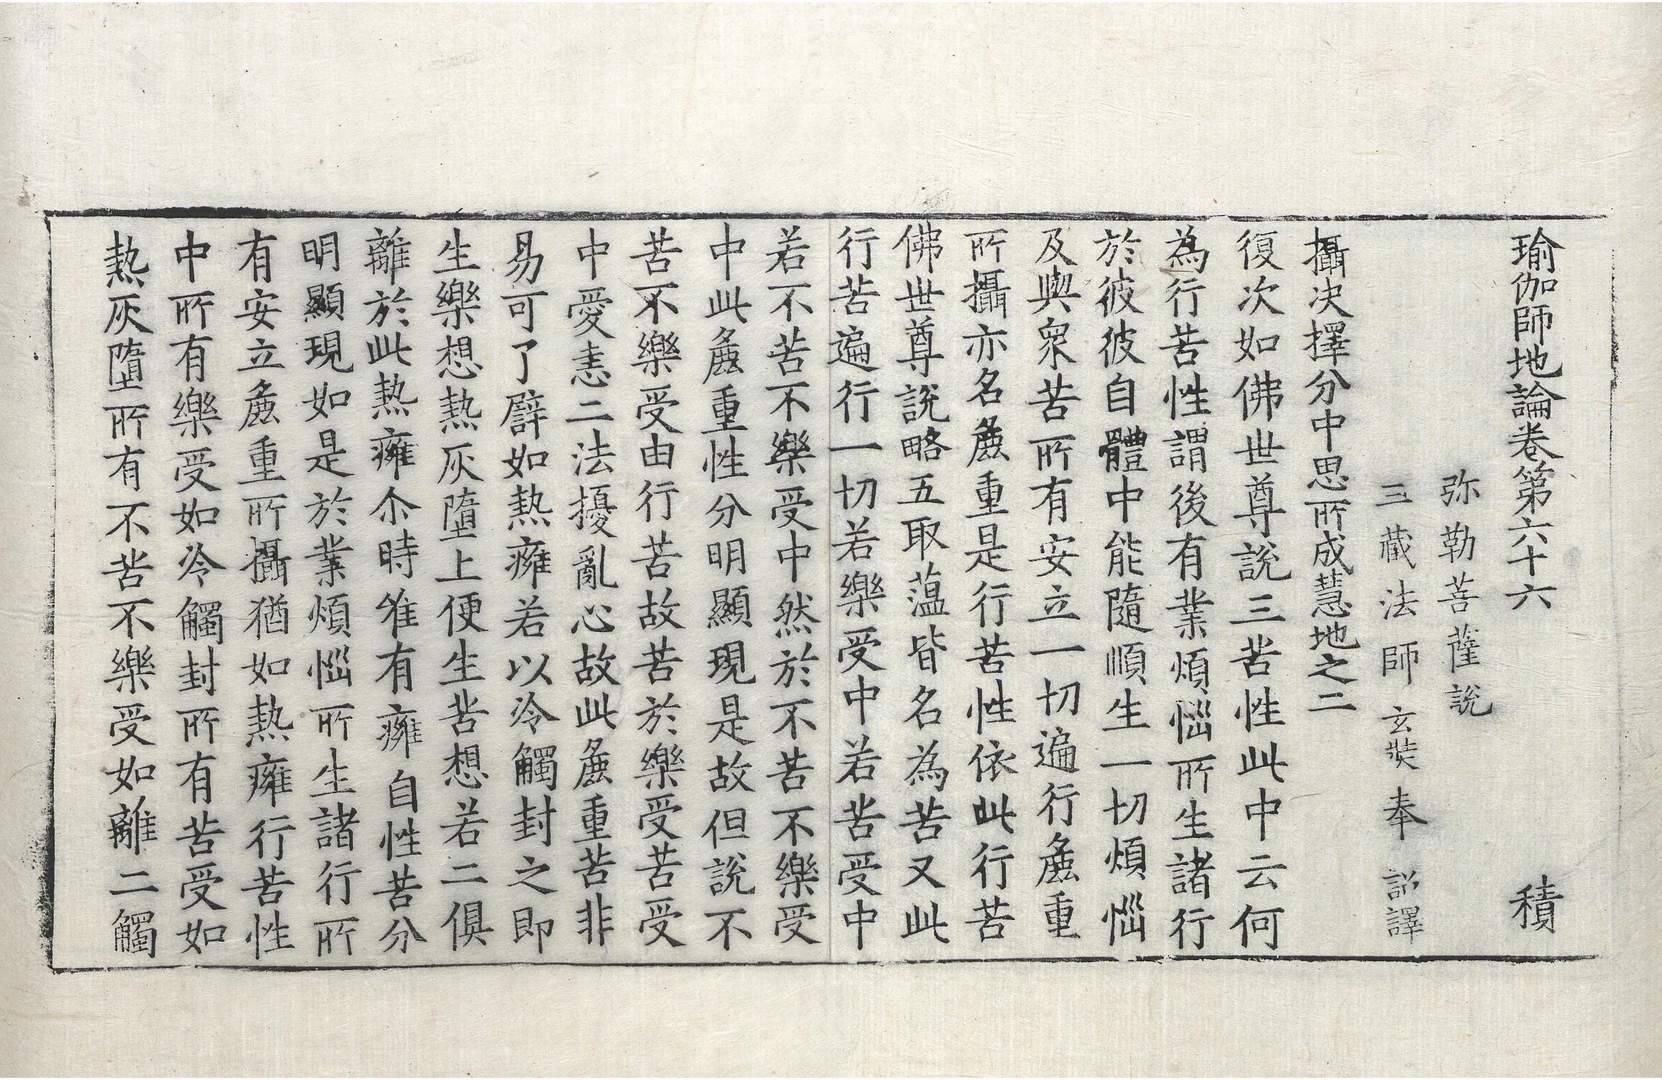 瑜伽師地論卷第六十六 積
弥勒菩薩說
三藏法師玄奘奉 詔譯
攝决擇分中思所成慧地之二
復次如佛世尊說三苦性此中云何
為行苦性謂後有業煩惱所生諸行
於彼彼自體中能隨順生一切煩惱
及與衆苦所有安立一切遍行麁重
所攝亦名麁重是行苦性依此行苦
佛世尊說略五取蘊皆名為苦又此
行苦遍行一切若樂受中若苦受中
若不苦不樂受中然於不苦不樂受
中此麁重性分明顯現是故但說不
苦不樂受由行苦故苦於樂受苦受
中愛恚二法擾亂心故此麁重苦非
易可了譬如熱癰若以冷觸封之即
生樂想熱灰墮上便生苦想若二俱
離於此熱癰尒時唯有癰自性苦分
明顯現如是於業煩惱所生諸行所
有安立麁重所攝猶如熱癰行苦性
中所有樂受如冷觸封所有苦受如
熱灰墮所有不苦不樂受如離二觸